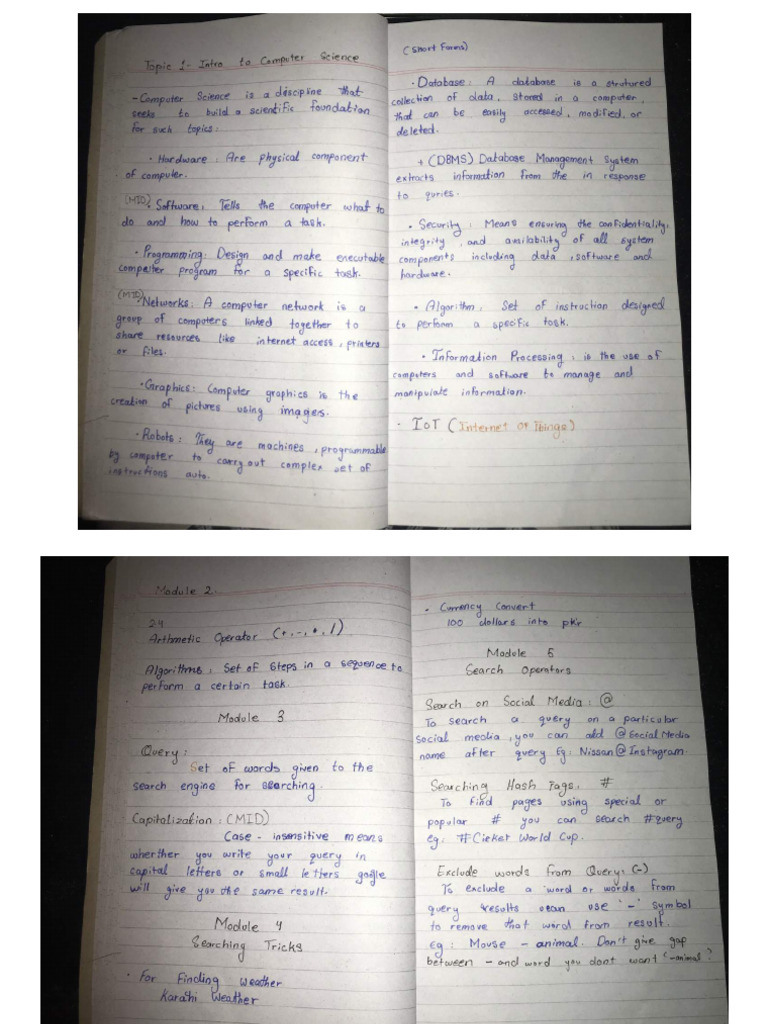 Topic 1- Intro to Computer Science
- Computer Science is a descipline that
seeks to build a scientific foundation
for such topics:
• Hardware: Are physical component
of computer.
(MID) • Software: Tells the computer what to
do and how to perform a task.
• Programming: Design and make executable
computer program for a specific task.
(MID) • Networks: A computer network is a
group of computers linked together to
share resources like internet access, printers
or files.
• Graphics: Computer graphics is the
creation of pictures using images.
• Robots: They are machines, programmable
by computer to carry out complex set of
instructions auto.
(Short Forms)
• Database: A database is a strutured
collection of data, stored in a computer,
that can be easily accessed, modified, or
deleted.
+ (DBMS) Database Management System
extracts information from the in response
to quries.
• Security: Means ensuring the confidentiality,
integrity, and availability of all system
components including data, software and
hardware.
• Algorithm: Set of instruction designed
to perform a specific task.
• Information Processing: is the use of
computers and software to manage and
manipulate information.
• IoT (Internet of Things)
Module 2.
24
Arthmetic Operator (+,-,*,/)
Algorithms: Set of Steps in a sequence to
perform a certain task.
Module 3
Query:
Set of words given to the
search engine for searching.
Capitalization: (MID)
Case-insensitive means
wherther you write your query in
capital letters or small letters google
will give you the same result.
Module 4
Searching Tricks
• For Finding weather
Karachi Weather
• Currency Convert
100 dollars into pkr
Module 5
Search Operators
Search on Social Media: @
To search a query on a particular
social media, you can add @Social Media
name after query Eg: Nissan@Instagram.
Searching Hash Tags: #
To find pages using special or
popular # you can search #query
eg: #Cricket World Cup.
Exclude words from Query: (-)
To exclude a word or words from
query results can use '-' symbol
to remove that word from result.
eg: Mouse - animal. Don't give gap
between - and word you dont want (-animal)